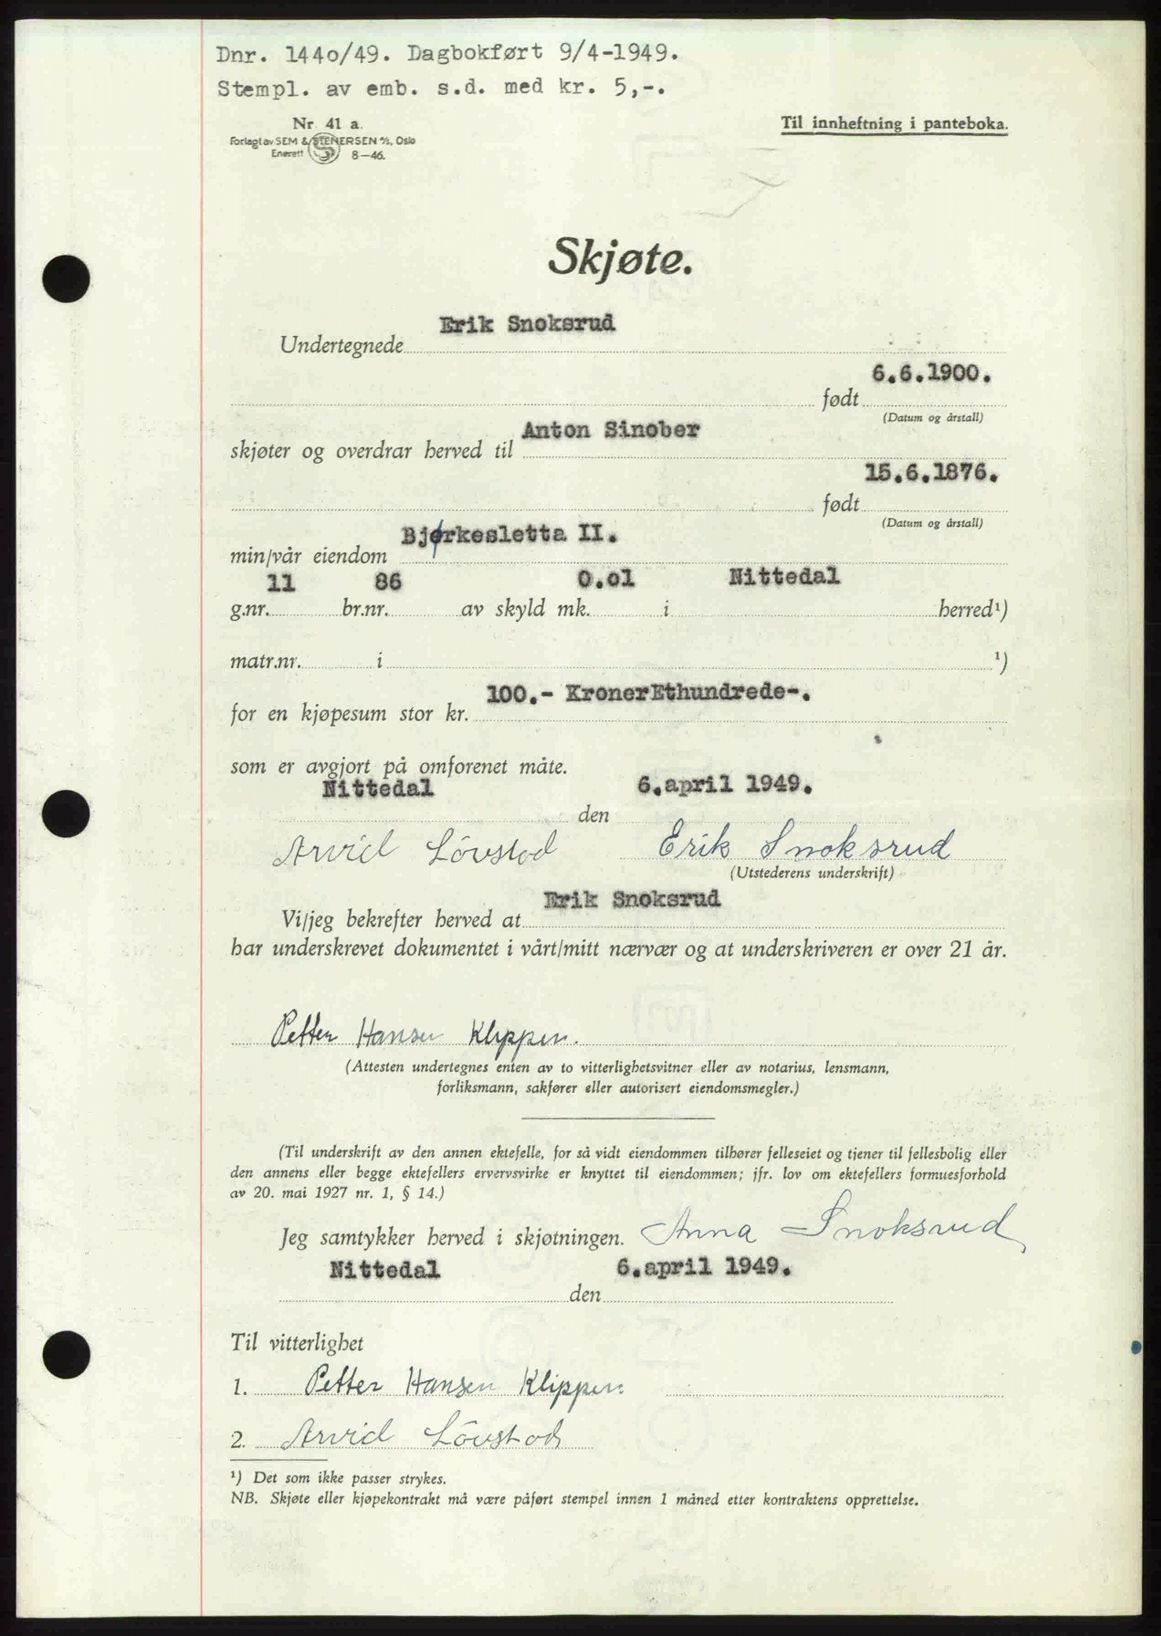 Dnr. 144o/49. Dagbokført 9/4-1949.
Stempl. av emb. s.d. med kr. 5,-.
Nr. 41 a.
Til innheftning i panteboka.
Forlagt av SEM & STENERSEN A/S, Oslo
Enerett 8-46.
Skjøte.
Erik Snoksrud
Undertegnede
6.6.1900.
født
(Datum og årstall)
Anton Sinober
skjøter og overdrar herved til
15.6.1876.
født
(Datum og årstall)
Bjørkesletta II.
min/vår eiendom
11 86 0.o1 Nittedal
g.nr. br.nr. av skyld mk. i herred¹)
matr.nr. i ¹)
100.- KronerEthundrede-.
for en kjøpesum stor kr.
som er avgjort på omforenet måte.
Nittedal 6.april 1949.
den
Arvid Lövstad Erik Snoksrud
(Utstederens underskrift)
Erik Snoksrud
Vi/jeg bekrefter herved at
har underskrevet dokumentet i vårt/mitt nærvær og at underskriveren er over 21 år.
Petter Hansen Klippen.
(Attesten undertegnes enten av to vitterlighetsvitner eller av notarius, lensmann,
forliksmann, sakfører eller autorisert eiendomsmegler.)
(Til underskrift av den annen ektefelle, for så vidt eiendommen tilhører felleseiet og tjener til fellesbolig eller
den annens eller begge ektefellers ervervsvirke er knyttet til eiendommen; jfr. lov om ektefellers formuesforhold
av 20. mai 1927 nr. 1, § 14.)
Jeg samtykker herved i skjøtningen. Anna Snoksrud
Nittedal 6.april 1949.
den
Til vitterlighet
1. Petter Hansen Klippen
2. Arvid Lövstad
¹) Det som ikke passer strykes.
NB. Skjøte eller kjøpekontrakt må være påført stempel innen 1 måned etter kontraktens opprettelse.